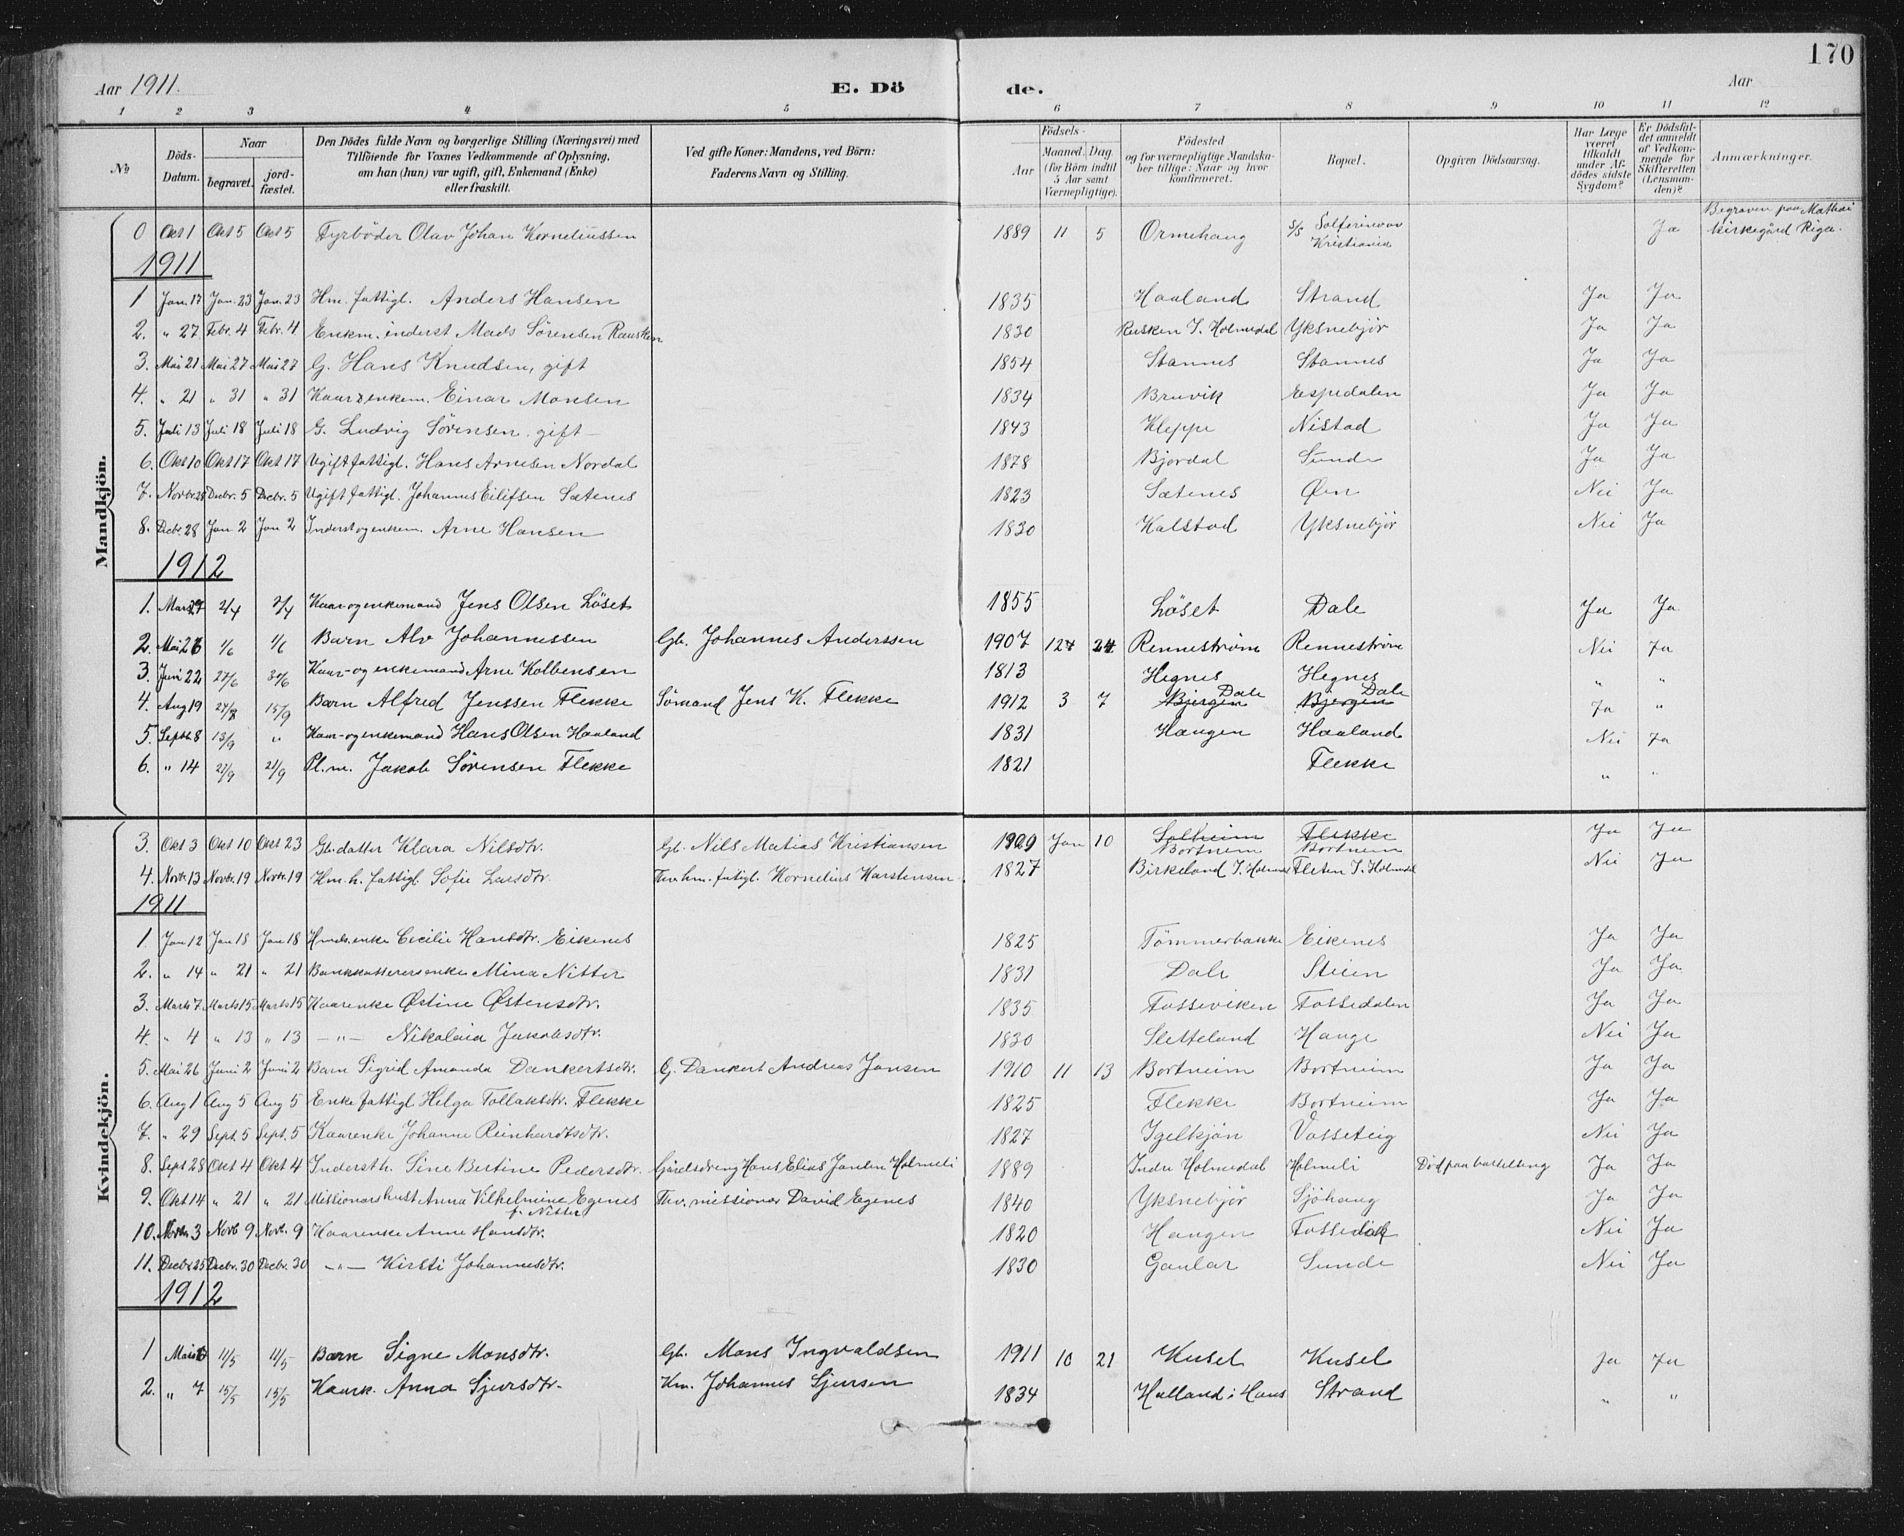 170
Aar 1911. E. Dö de. Aar
1 2 3 4 5 6 7 8 9 10 11 12
No. Döds-Datum. Naar begravet. jord-fæstet. Den Dödes fulde Navn og borgerlige Stilling (Næringsvei) med Tilföiende for Voxnes Vedkommende af Oplysning, om han (hun) var ugift, gift, Enkemand (Enke) eller fraskilt. Ved gifte Koner: Mandens, ved Börn: Faderens Navn og Stilling. Födsels- Aar Maaned. Dag. (for Börn indtil 5 Aar samt Værnepligtige). Födested og for værnepligtige Mandskaber tillige: Naar og hvor konfirmeret. Bopæl. Opgiven Dödsaarsag. Har Læge været tilkaldt under Afdödes sidste Sygdom? Er Dödsfaldet anmeldt af Vedkommende for Skifteretten (Lensmanden)? Anmærkninger.
Mandkjön.
0 Okt 1 Okt 5 Okt 5 Fyrböder Olav Johan Korneliussen 1889 11 5 Ormehaug S/S Solferinovar Kristiania Ja Begraven paa Mathæi kirkegård Riga.
1911
1 Jan. 17 Jan. 23 Jan. 23 Hm. fattigl. Anders Hansen 1835 Haaland Strand Ja Ja
2. " 27 Febr. 4 Febr. 4 Enkm. inderst. Mads Sörensen Rausken 1830 Rusken I. Holmedal Yksnebjör Ja Ja
3. Mai 21 Mai 27 Mai 27 G. Hans Knudsen, gift 1854 Stannes Stannes Ja Ja
4. " 21 " 31 " 31 Kaar & enkem. Einar Monsen 1834 Bruvik Espedalen Ja Ja
5. Juli 13 Juli 18 Juli 18 G. Ludvig Sörensen. gift 1843 Kleppe Nistad Ja Ja
6. Okt 10 Okt 17 Okt 17 Ugift fattigl. Hans Arnesen Nordal 1878 Bjordal Sunde Ja Ja
7. Novbr. 25 Decbr. 5 Decbr. 5 Ugift fattigl. Johannes Eilifsen Sætenes 1823 Sætenes Øen Nei Ja
8. Decbr 28 Jan 2 Jan 2 Inderst og enkem. Arne Hansen 1830 Kalstad Yksnebjör Nei Ja
1912
1. Mars 27 2/4 2/4 Kaar og enkemand Jens Olsen Löset 1855 Löset Dale Ja Ja
2. Mai 26 1/6 1/6 Barn Alv Johannessen Gb. Johannes Anderssen 1907 12 24 Renneström Renneström Nei Ja
3. Juni 22 27/6 30/6 Kaar- og enkemand Arne Kolbensen 1813 Hegnes Hegnes " "
4. Aug 19 24/8 15/9 Barn Alfred Jenssen Flekke Sömand Jens K. Flekke 1912 3 7 Bjergen Dale Bjergen Dale Ja "
5. Septb 8 13/9 " Kaar- og enkemand Hans Olsen Haaland 1831 Haugen Haaland Nei Ja
6. " 14 21/9 21/9 Pl.m. Jakob Sörensen Flekke 1821 Flekke " "
Kvindekjön.
3. Okt 3 Okt 10 Okt 23 Gb. datter Klara Nilsdtr. Gb. Nils Matias Kristiansen 1909 Jan 10 Solheim Bortneim Flekke Bortneim Ja Ja
4. Novbr. 13 Novbr. 19 Novbr. 19 Hm. h. fattigl. Sofie Larsdtr. Thv. hm. fatigl. Kornelius Karstensen 1827 Birkeland I. Holmedal Fleten I. Holmedal Nei Ja
1911
1 Jan 12 Jan 18 Jan 18 Hmds. enke Cecilie Hansdtr. Eikenes 1825 Tömmerbakke Eikenes Ja Ja
2. " 14 " 21 " 21 Bankkassererenke Mina Nitter 1831 Dale Steien Ja Ja
3 Marts 7 Marts 15 Marts 15 Kaarenke Østine Østensdtr. 1835 Fosseviken Fossedalen Ja Ja
4. " 4 " 13 " 13 — " — Nikolaia Jakobsdtr. 1830 Sletteland Hauge Nei Ja
5. Mai 26 Juni 2 Juni 2 Barn Sigrid Amanda Dankertsdtr. G. Dankert Andreas Jansen 1910 11 13 Bortneim Bortneim Ja Ja
6. Aug 1 Aug 5 Aug 5 Enke fattigl Helga Tollaksdtr. Flekke 1825 Flekke Bortneim Ja Ja
7. " 29 Sept. 5 Sept. 5 Kaarenke Johanne Reinhardtsdtr. 1827 Igelkjön Vasseteig Nei Ja
8. Sept 28 Okt 4 Okt 4 Indersth. Sine Bertine Pedersdtr. Gårdsdreng Hans Elias Jansen Holmeli 1889 Indre Holmedal Holmeli Död paa barselseng Ja Ja
9. Okt 14 " 21 " 21 Missionærshust Anna Vilhelmine Egenes f. Nitter Thv. missionær David Egenes 1840 Yksnebjör Sjöhaug Ja Ja
10. Novbr. 3 Novb 9 Novb. 9 Kaarenke Anne Hansdtr. 1820 Haugen Fossedal Nei Ja
11. Decbr. 25 Decbr. 30 Decbr. 30 — " — Kirsti Johannesdtr. 1830 Gaular Sunde Nei Ja
1912
1 Mai 6 11/5 11/5 Barn Signe Monsdtr. Gb. Mons Ingvaldsen 1911 10 21 Kusel Kusel Ja Ja
2. " 7 15/5 15/5 Kaark. Anna Sjursdtr. Km. Johannes Sjursen 1834 Halland i Haus Strand " "